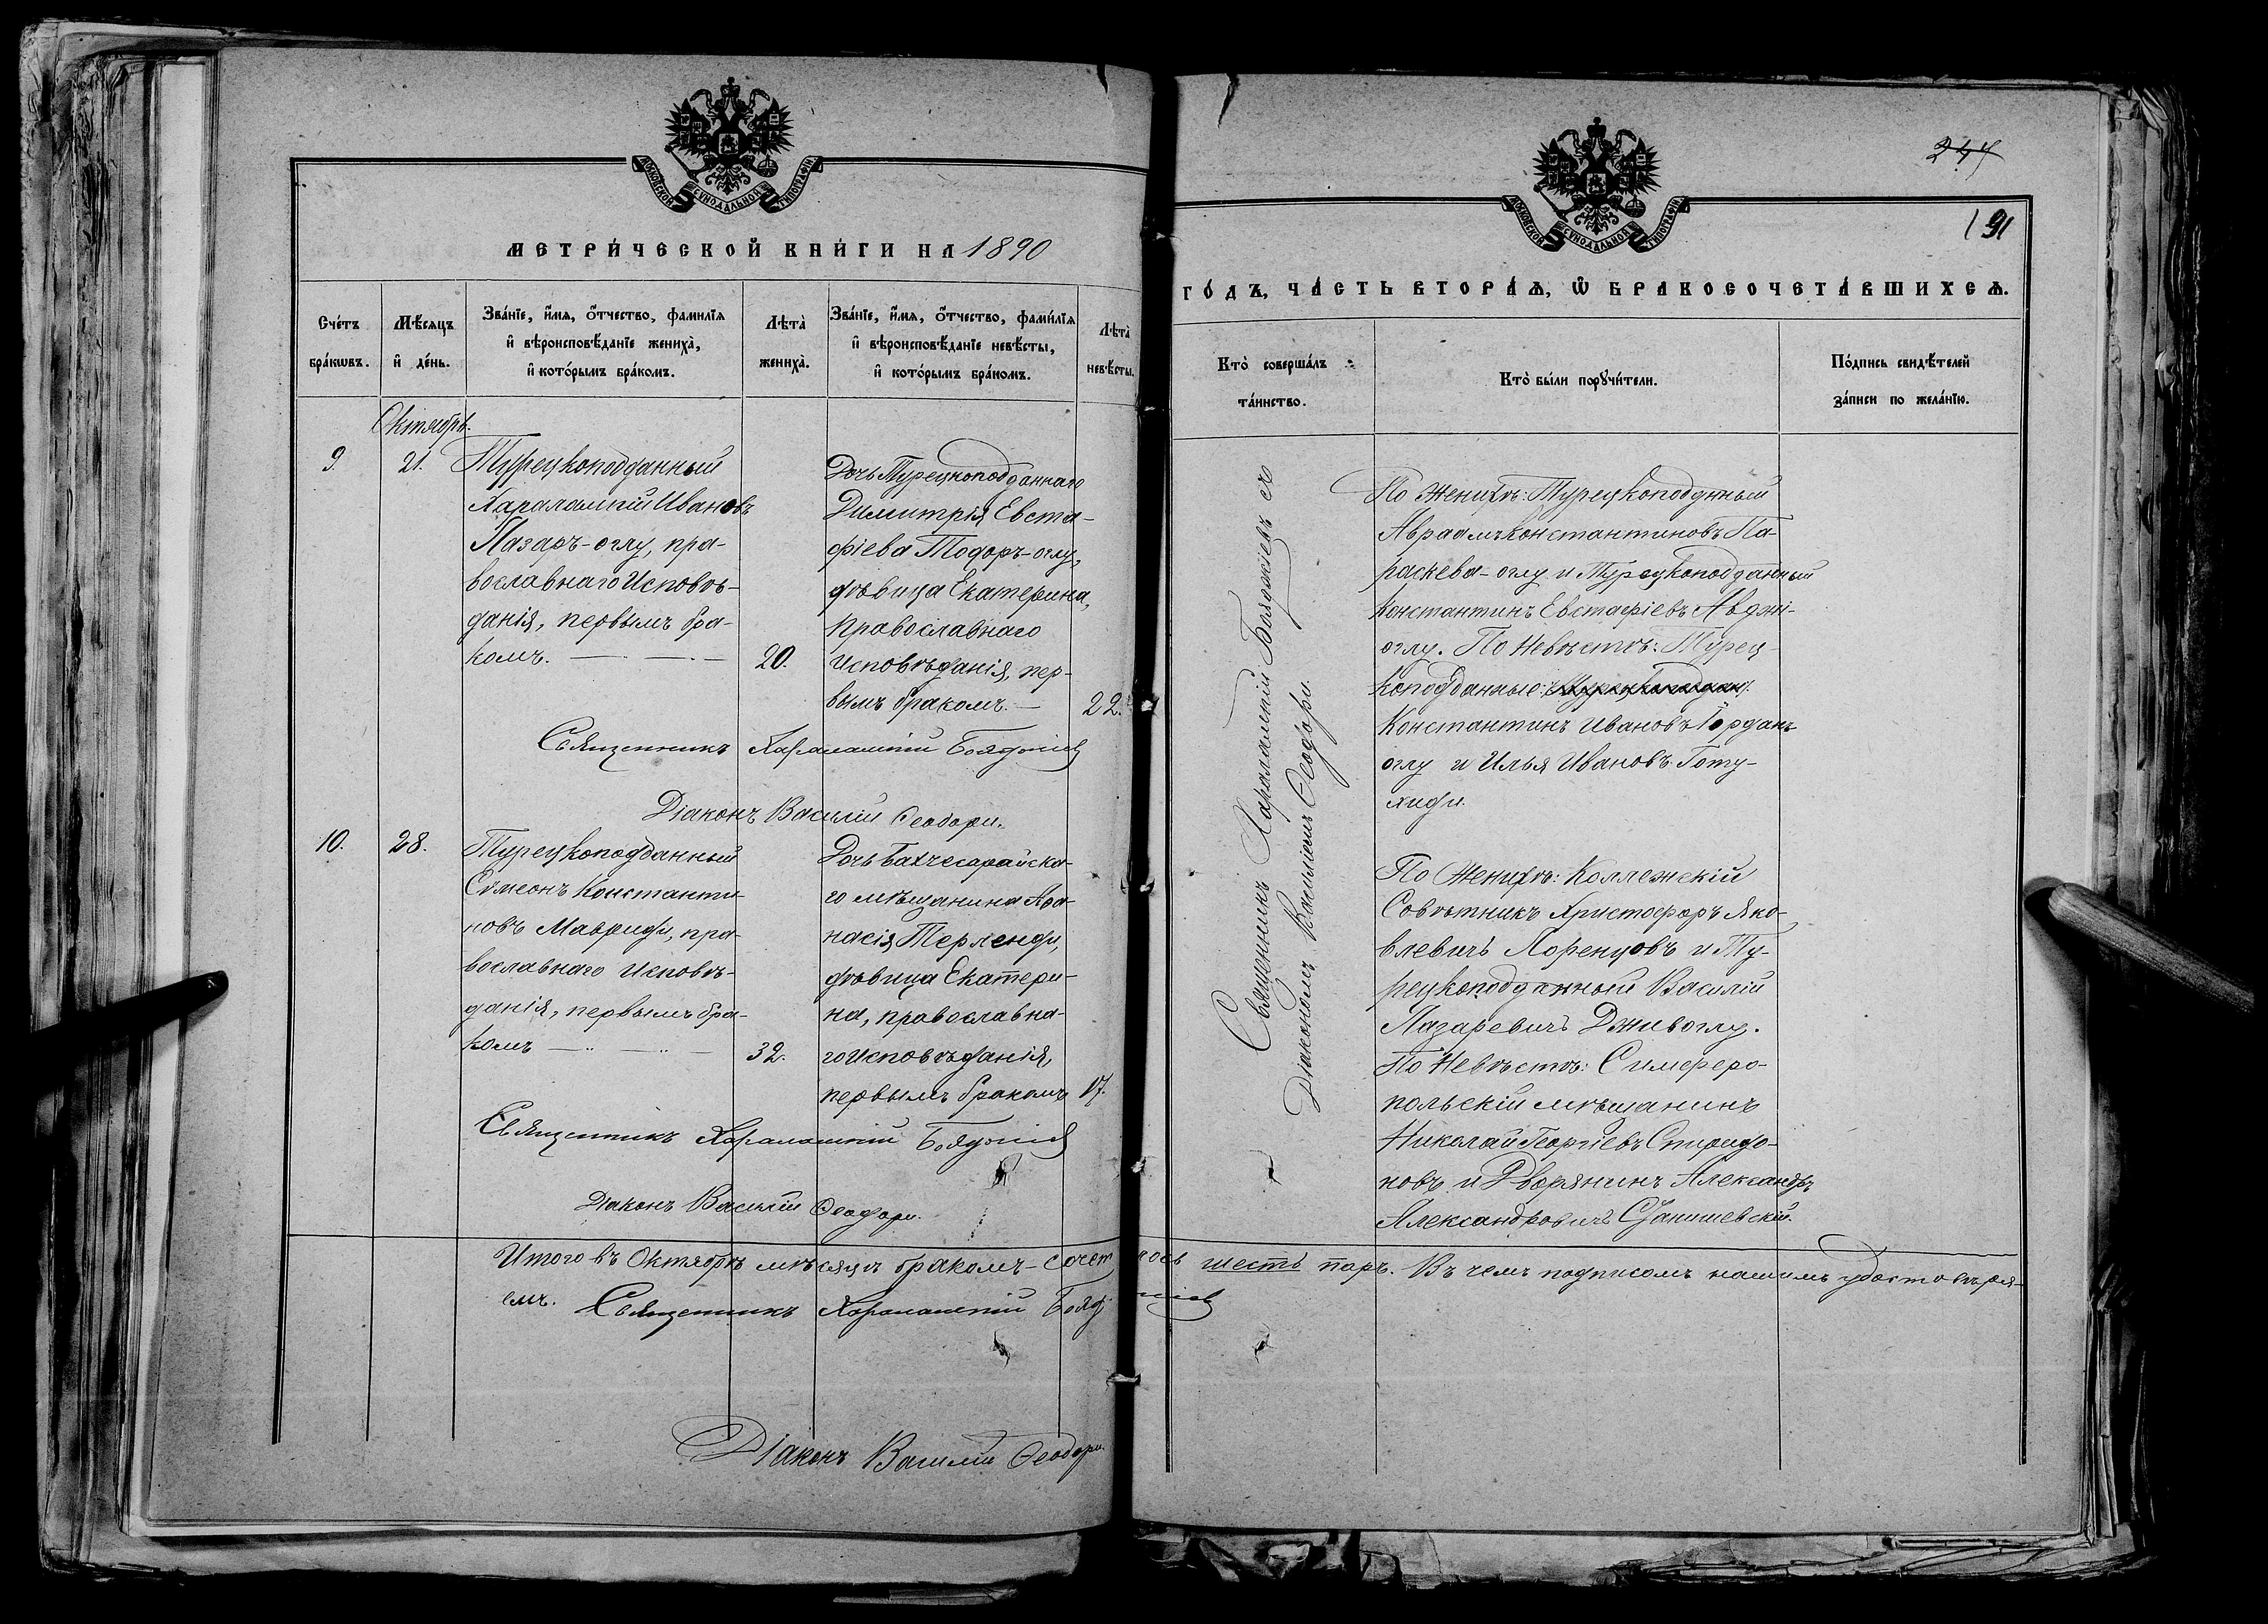 МОСКОВСКОЙ СѴНОДАЛЬНОЙ ТИПОГРАФІИ
МЕТРИ́ЧЕСКОЙ КНИ́ГИ НА 1890
Сче́тъ бра́кωвъ.
Мѣ́сяцъ и҆ де́нь.
Зва́нїе, и҆́мя, ѻ҆́тчество, фами́лїя
и҆ вѣроисповѣ́данїе жениха̀,
и҆ кото́рымъ бра́комъ.
Лѣта̀ жениха̀.
Зва́нїе, и҆́мя, ѻ҆́тчество, фами́лїя
и҆ вѣроисповѣ́данїе невѣ́сты,
и҆ кото́рымъ бра́комъ.
Лѣта̀ невѣ́сты.
Октябрь.
9. 21.
Турецкоподданный
Харалампій Ивановъ
Лазаръ-оглу, пра-
вославнаго Исповѣ-
данія, первымъ бра-
комъ. 20.
Дочь Турецкоподданнаго
Димитрія Евста-
фіева Тодоръ-оглу,
дѣвица Екатерина,
Православнаго
исповѣданія, пер-
вымъ бракомъ. — 22.
Священникъ Харалампій Бояджіев
Діаконъ Василій Ѳеодори.
10. 28.
Турецкоподданный
Сѵмеонъ Константи-
новъ Мавриди, пра-
вославнаго Исповѣ-
данія, первымъ бра-
комъ 32.
Дочь Бахчесарайска-
го мѣщанина Аѳа-
насія Терленди,
дѣвица Екатери-
на, православна-
го исповѣданія,
первымъ бракомъ 17.
Священникъ Харалампій Бояджіев
Діаконъ Василій Ѳеодори.
Итого въ Октябрѣ мѣсяцѣ бракомъ-сочет лось шесть паръ. Въ чемъ подписомъ нашимъ удостовѣря-
емъ. Священникъ Харалампій Бояджіев
Діаконъ Василій Ѳеодори.
МОСКОВСКОЙ СѴНОДАЛЬНОЙ ТИПОГРАФІИ
247
191
ГО́ДЪ, ЧА́СТЬ ВТОРА́Я, Ѡ҆ БРАКОСОЧЕТА́ВШИХСЯ.
Кто̀ соверша́лъ
та́инство.
Кто̀ бы́ли порꙋчи́тели.
По́дпись свидѣ́телей
за́писи по жела́нїю.
Священникъ Харалампій Бояджіевъ съ
Діакономъ Василіемъ Ѳеодори.
По Женихѣ: Турецкоподдный
Авраамъ Константиновъ Па-
раскева-оглу и Турецкоподданный
Константинъ Евстафіевъ Авджи-
оглу. По Невѣстѣ: Турец-
коподданные:
Константинъ Ивановъ Іорданъ-
оглу и Илья Ивановъ Готу-
хиди.
По Женихѣ: Коллежскій
Совѣтникъ Христофоръ Яко-
влевичъ Лоренцовъ и Ту-
рецкоподданный Василій
Лазаревичъ Дживоглу.
По Невѣстѣ: Симферо-
польскій мѣщанинъ
Николай Георгіевъ Спиридо-
новъ и Дворянинъ Александръ
Александровичъ Станишевскій.